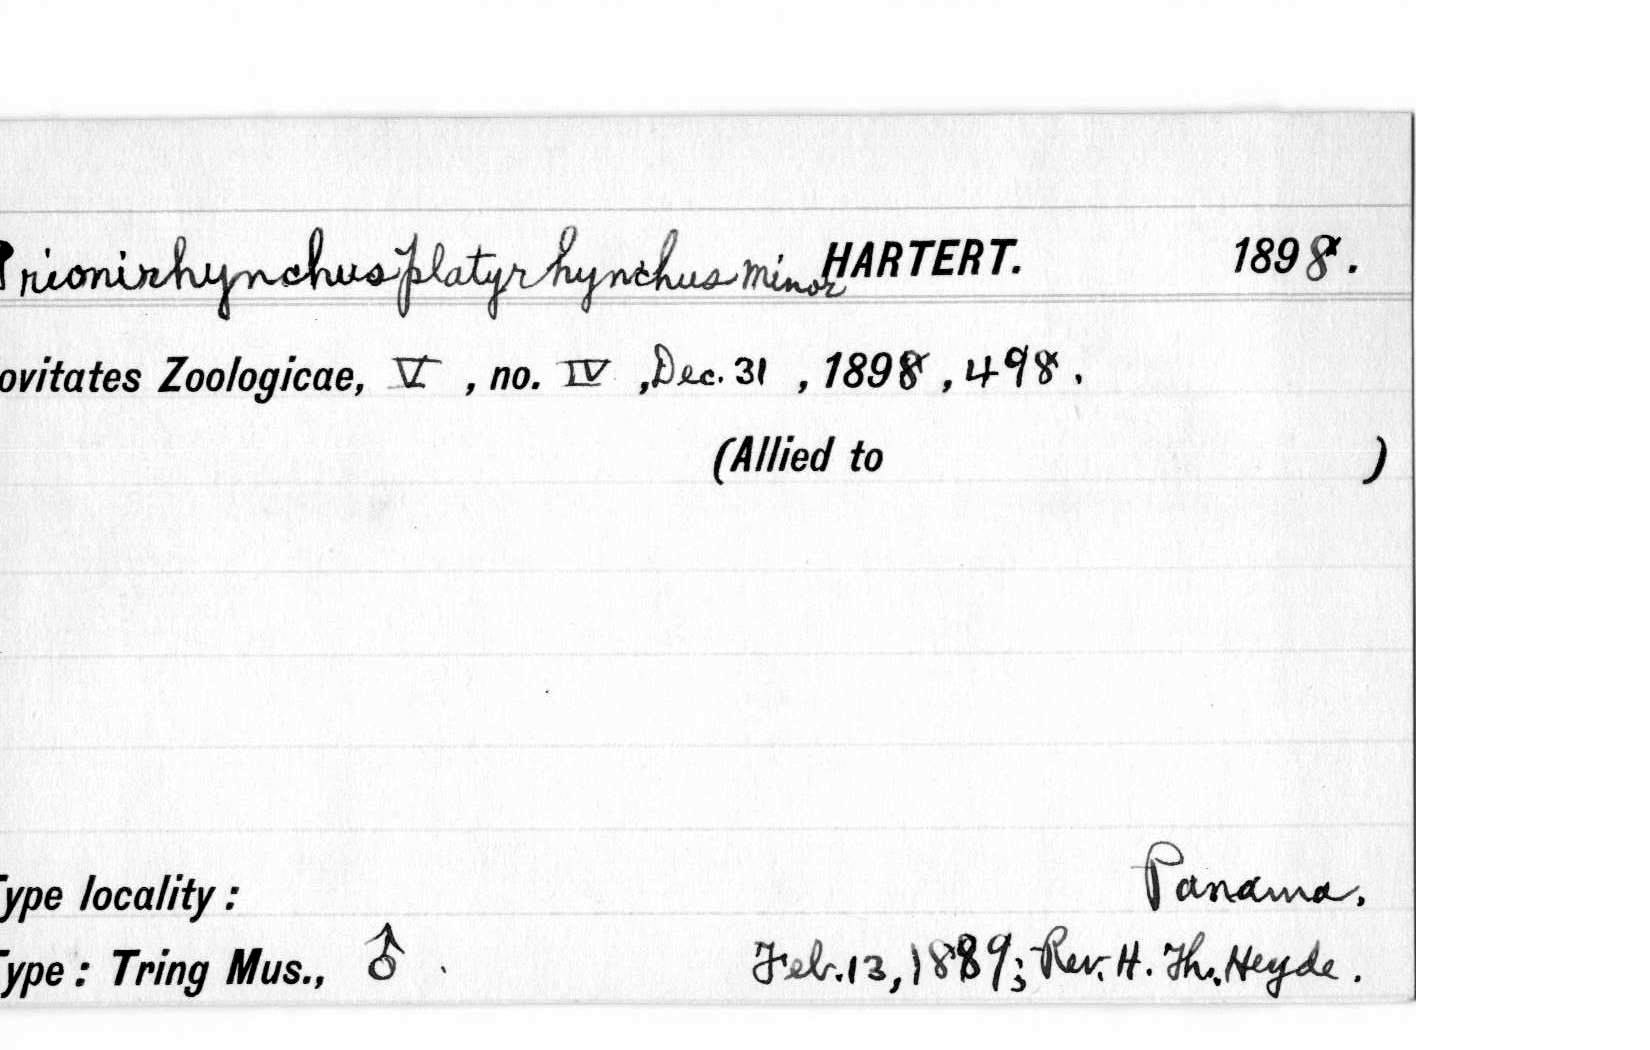 Prionirhynchus platyrhynchus minor HARTERT. 1898.
ovitates Zoologicae, V, no. IV, Dec. 31, 1898, 498.
(Allied to )
Type locality: Panama.
Type: Tring Mus., ♂. Feb. 13, 1889; Rev. H. Th. Heyde.